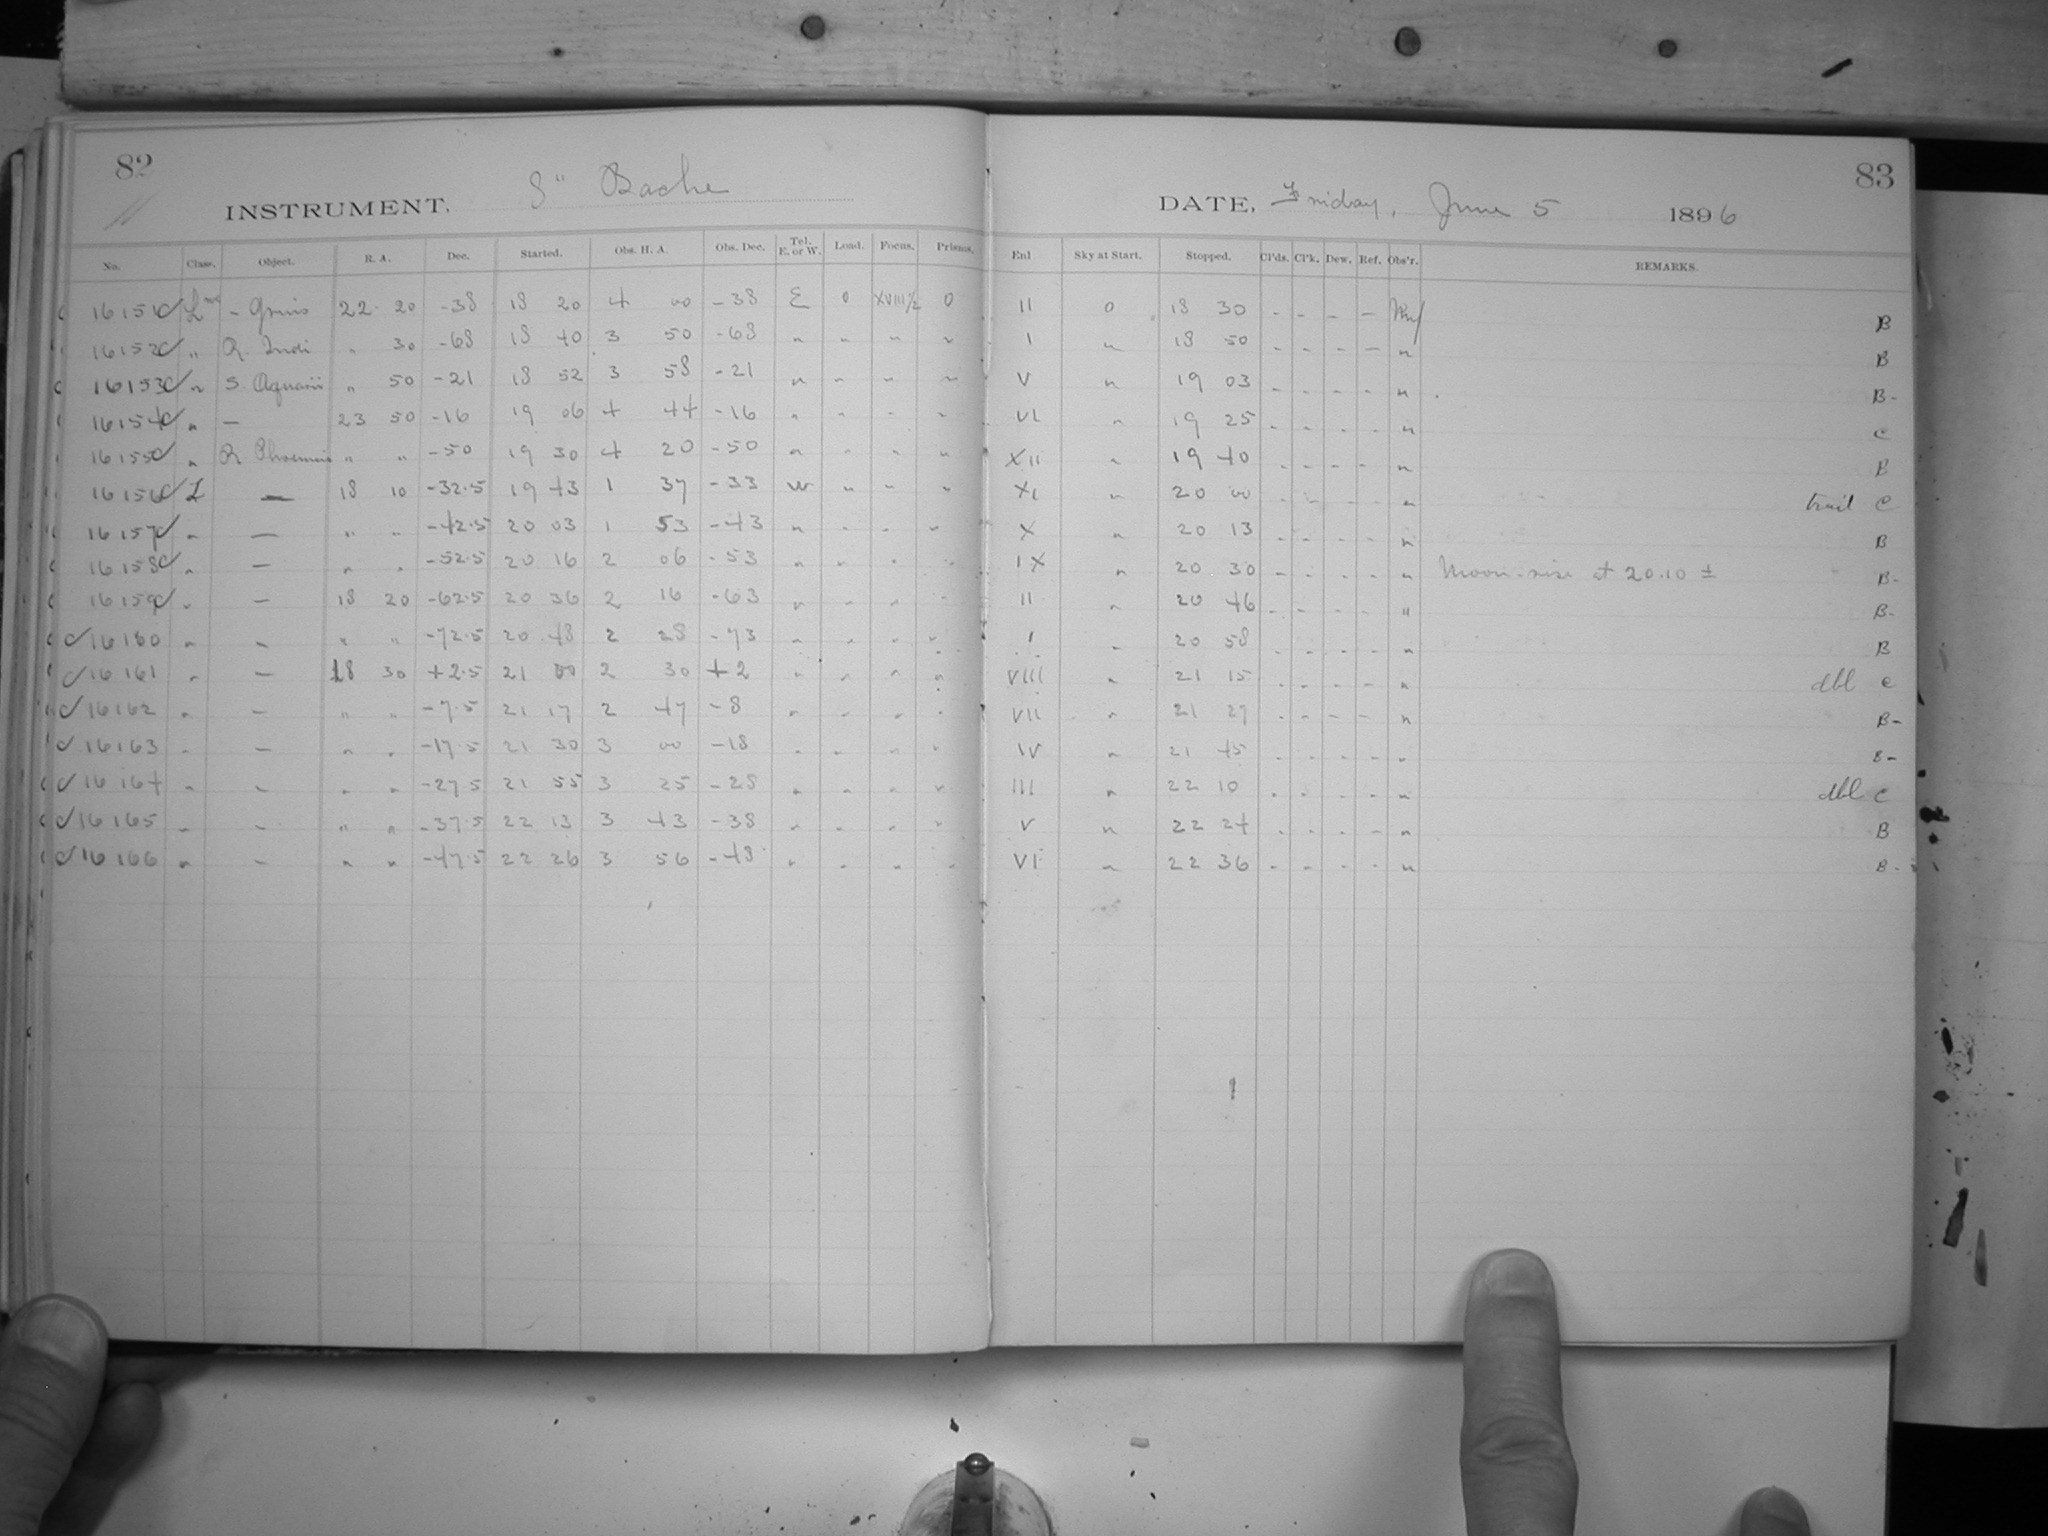 82
INSTRUMENT, 8" Bache
No. Class. Object. R. A. Dec. Started. Obs. H. A. Obs. Dec. Tel. E. or W. Load. Focus. Prisms.
16151 - Gruis 22 20 -38 18 20 4 00 -38 E 0 XVIII½ 0
16152 " R. Indi " 30 -68 18 40 3 50 -68 " " " "
16153 " S Aquarii " 50 -21 18 52 3 58 -21 " " " "
16154 " — 23 50 -16 19 06 4 44 -16 " " " "
16155 " R Phoenicis " " -50 19 30 4 20 -50 " " " "
16156 L — 18 10 -32.5 19 43 1 37 -33 W " " "
16157 " — " " -42.5 20 03 1 53 -43 " " " "
16158 " — " " -52.5 20 16 2 06 -53 " " " "
16159 " — 18 20 -62.5 20 36 2 16 -63 " " " "
16160 " — " " -72.5 20 48 2 28 -73 " " " "
16161 " — 18 30 +2.5 21 00 2 30 +2 " " " "
16162 " — " " -7.5 21 17 2 47 -8 " " " "
16163 " — " " -17.5 21 30 3 00 -18 " " " "
16164 " — " " -27.5 21 55 3 25 -28 " " " "
16165 " — " " -37.5 22 13 3 43 -38 " " " "
16166 " — " " -47.5 22 26 3 56 -48 " " " "
83
DATE, Friday, June 5 1896
Enl Sky at Start. Stopped. Cl'ds. Cl'k. Dew. Ref. Obs'r. REMARKS.
II 0 18 30 - - - - B
I " 18 50 - - - - " B
V " 19 03 - - - - " B-
VI " 19 25 - - - - " C
XII " 19 40 - - - - " B
XI " 20 00 - - - - " trail C
X " 20 13 - - - - " B
IX " 20 30 - - - - " Moon-rise at 20.10 ± B-
II " 20 46 - - - - " B-
I " 20 58 - - - - " B
VIII " 21 15 - - - - " dbl C
VII " 21 27 - - - - " B-
IV " 21 45 - - - - " B-
III " 22 10 - - - - " dbl C
V " 22 24 - - - - " B
VI " 22 36 - - - - " B-